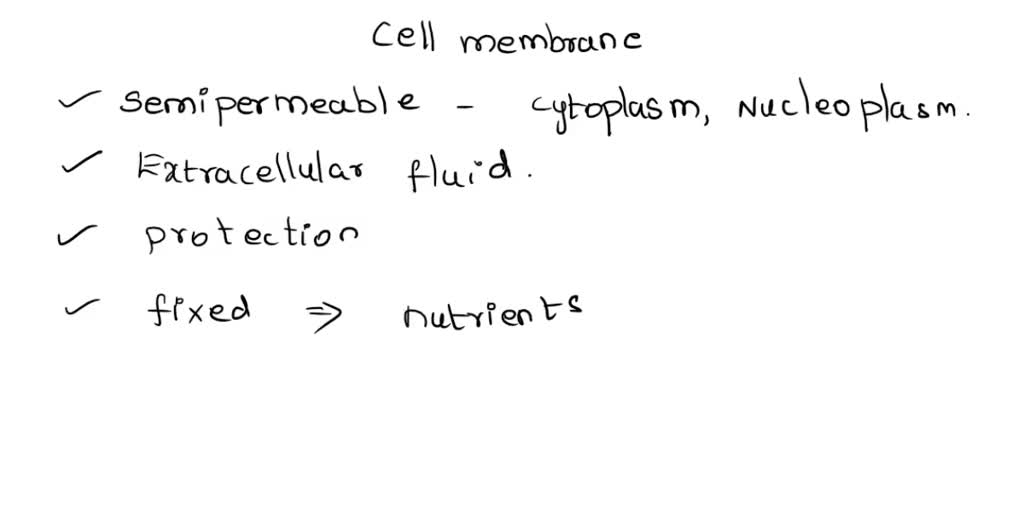 Cell membrane
✓ Semipermeable - Cytoplasm, Nucleoplasm.
✓ Extracellular fluid.
✓ protection
✓ fixed ⇒ nutrients